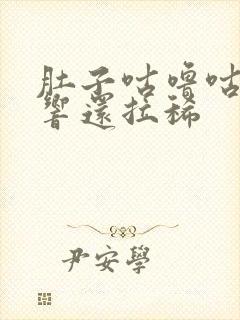 肚子咕噜咕
響還拉稀
尹安學